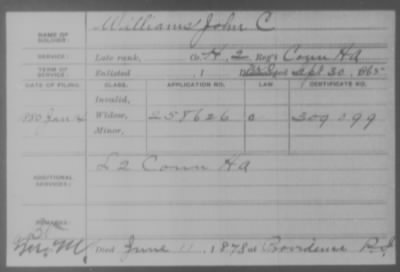 NAME OF SOLDIER: Williams, John C
SERVICE: Late rank, Co. H, 2 Reg't Conn H A
TERM OF SERVICE: Enlisted , 1 Apl 30, 1865
DATE OF FILING. CLASS. APPLICATION NO. LAW CERTIFICATE NO.
Invalid,
1880 Jan Widow, 258626 309099
Minor,
ADDITIONAL SERVICES: L 2 Conn H A
REMARKS:
Died June 11, 1878 at Providence R.I.